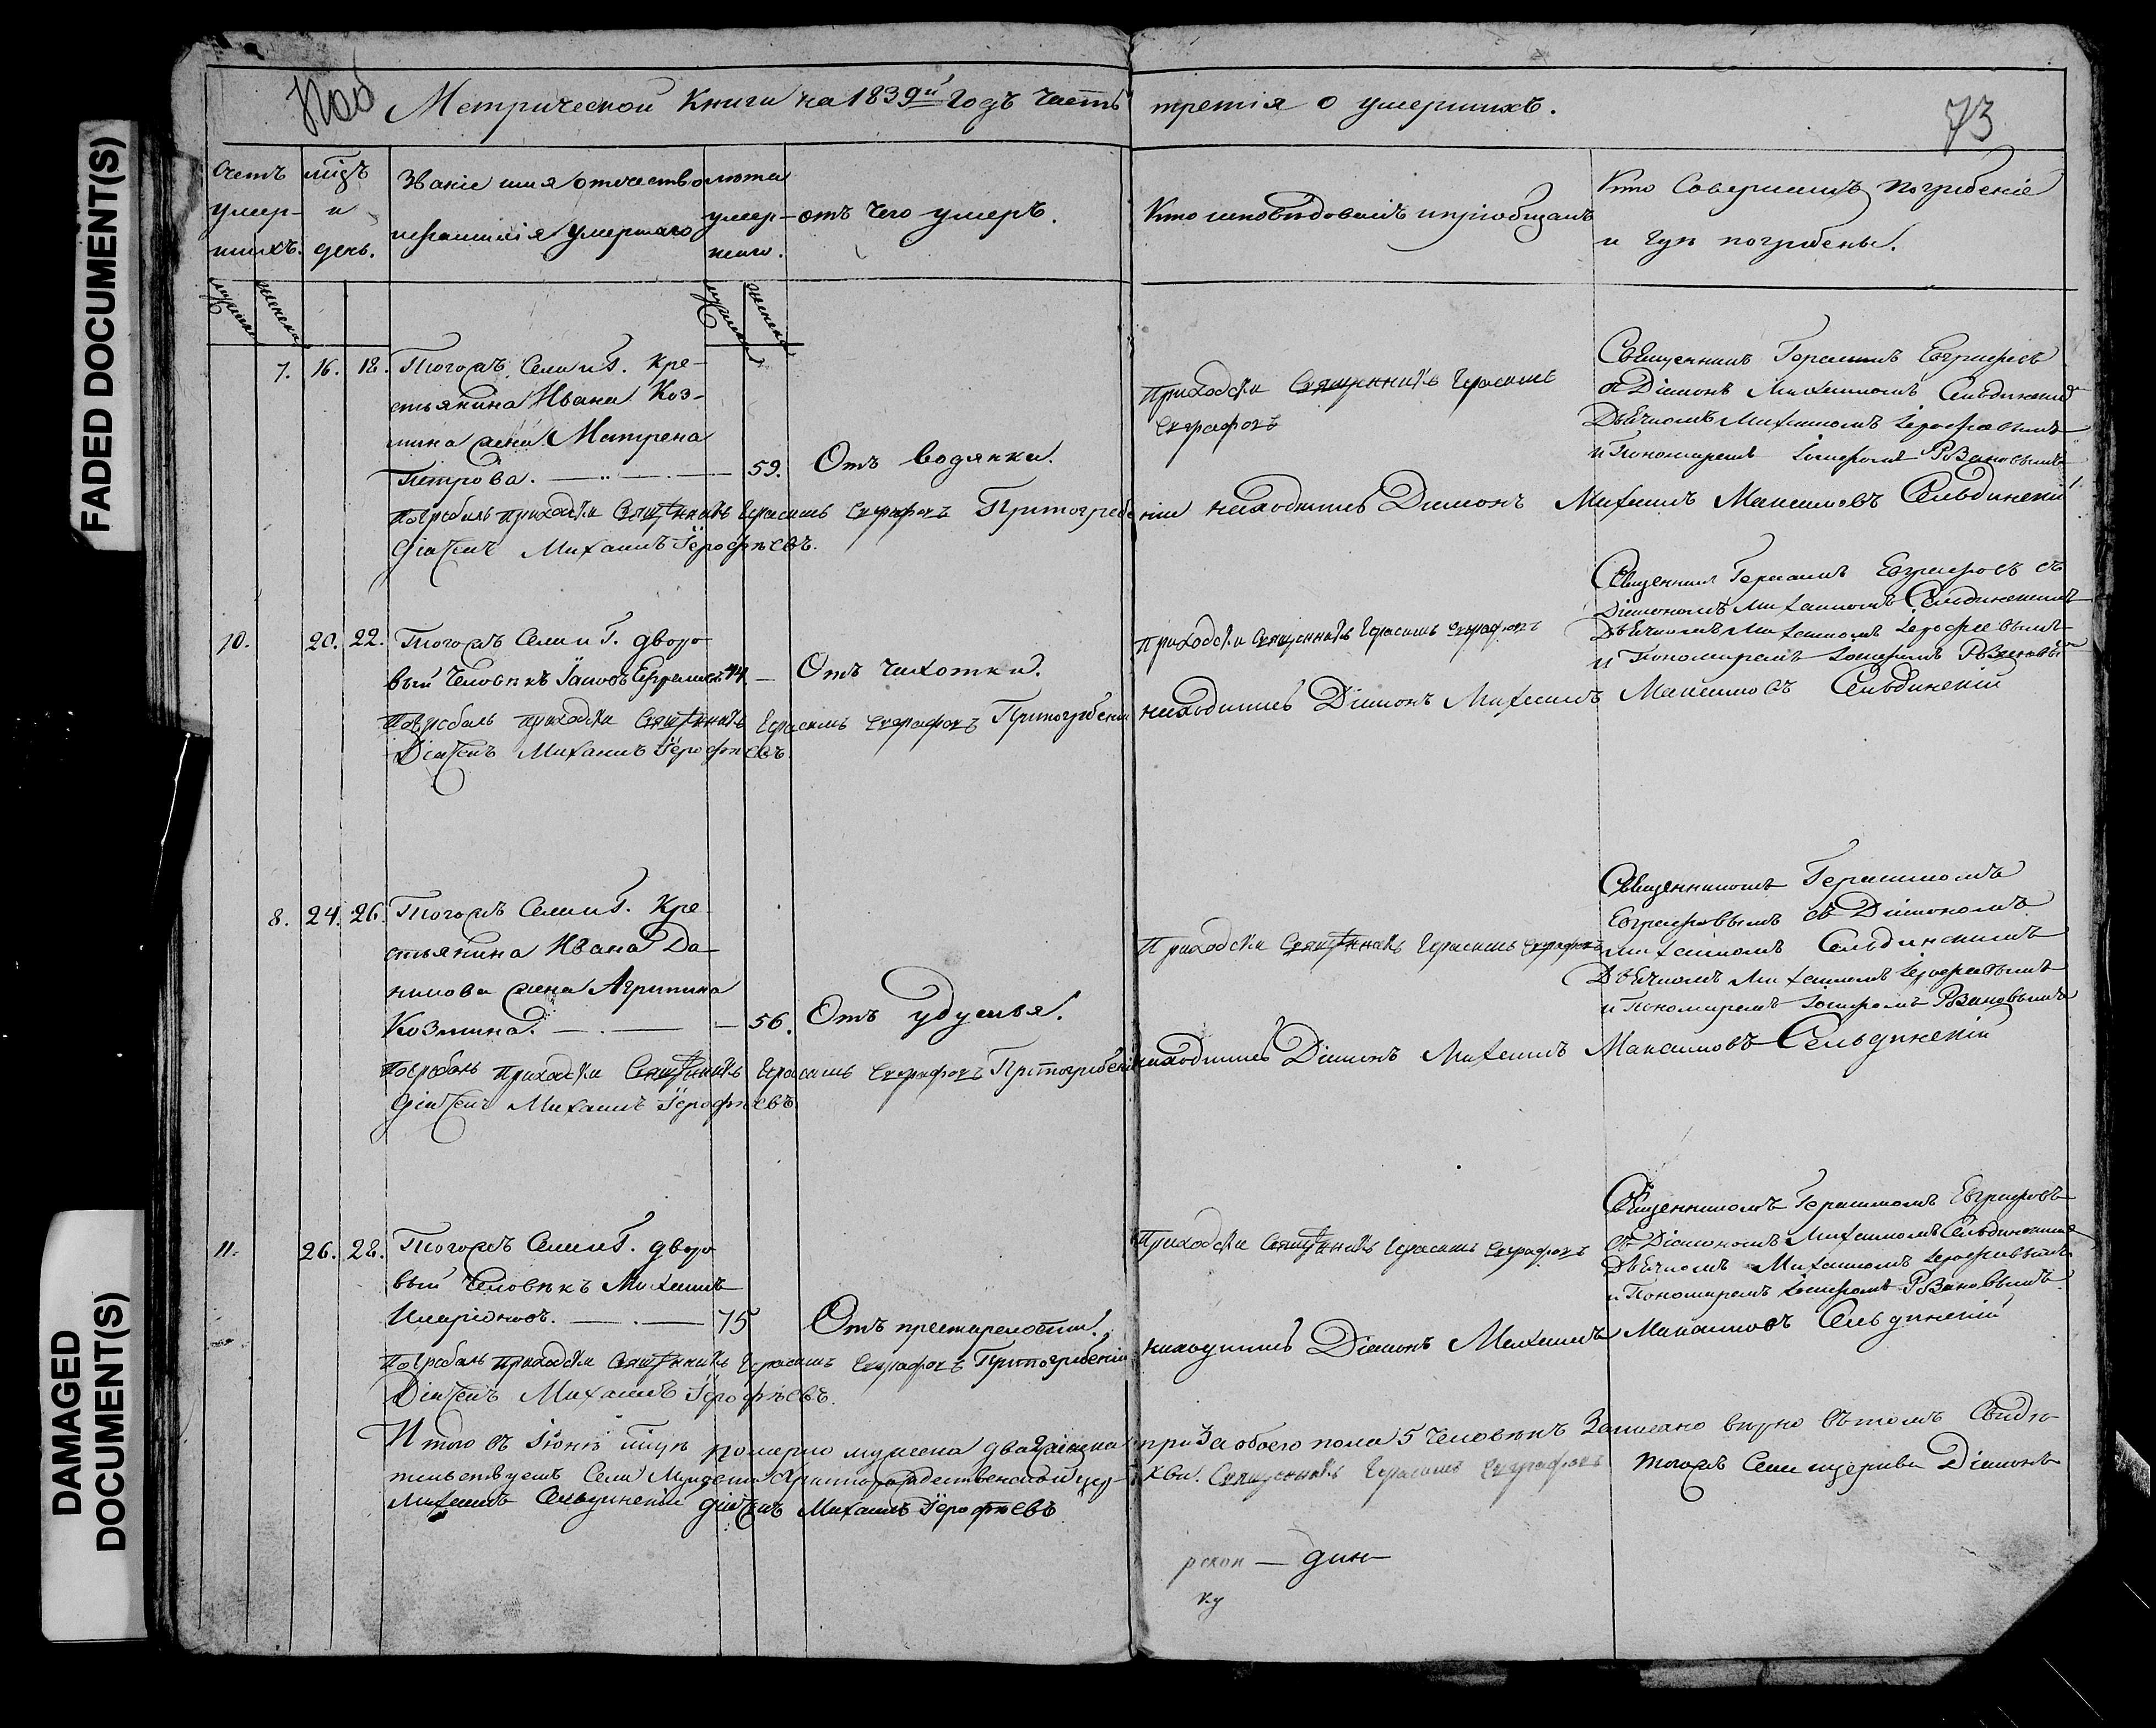 FADED DOCUMENT(S)
DAMAGED DOCUMENT(S)
Метрической Книги на 1839й Годъ Часть третія о умершихъ.
73
Счетъ умер-
шихъ.
мцъ
и
день.
Званіе имя отечество
и фамилія умершаго
лѣта
умер-
шаго.
отъ чего умеръ.
Кто исповѣдовалъ и пріобщалъ
Кто Совершалъ погребеніе
и гдѣ погребены.
мужска женска
мужска женска
7. 16. 18. Тогожъ Села и Г. Кре-
стьянина Ивана Коз-
мина жена Матрена
Петрова. 59. Отъ водянки.
приходски Священникъ Герасимъ
Евграфовъ
Священникъ Герасимъ Евграфовъ
съ Діакономъ Михаиломъ Сельдинскимъ
Дьячкомъ Михаиломъ Іерофѣевымъ
и Пономаремъ Іосифомъ Розановымъ
погребалъ приходски Священникъ Герасимъ Евграфовъ При погребеніи находились Діаконъ Михаилъ Максимовъ Сельдинскій
діячекъ Михаилъ Іерофѣевъ.
10. 20. 22. Тогожъ Села и Г. дворо-
вый Человѣкъ Іаковъ Ефремовъ 44. Отъ чихотки.
приходски Священникъ Герасимъ Евграфовъ
Священникъ Герасимъ Евграфовъ съ
Діакономъ Михаиломъ Сельдинскимъ
Дьячкомъ Михаиломъ Іерофѣевымъ
и Пономаремъ Іосифомъ Розановы
погребалъ приходски Священникъ Герасимъ Евграфовъ При погребеніи находились Діаконъ Михаилъ Максимовъ Сельдинскій
Діячекъ Михаилъ Іерофѣевъ.
8. 24. 26. Тогожъ Села и Г. Кре-
стьянина Ивана Да-
нилова жена Агрипина
Козмина. 56. Отъ удушья.
Приходски Священникъ Герасимъ Евграфовъ
Священникомъ Герасимомъ
Евграфовымъ съ Діакономъ
Михаиломъ Сельдинскимъ
Дьячкомъ Михаиломъ Іерофѣевымъ
и Пономаремъ Іосифомъ Розановымъ
погребалъ приходски Священникъ Герасимъ Евграфовъ При погребеніи находились Діаконъ Михаилъ Максимовъ Сельдинскій
діячекъ Михаилъ Іерофѣевъ
11. 26. 28. Тогожъ Села и Г. дворо-
вый Человѣкъ Михаилъ
Иларіоновъ. 75 Отъ престарелости.
Приходски Священникъ Герасимъ Евграфовъ
Священникомъ Герасимомъ Евграфовъ
съ Діакономъ Михаиломъ Сельдинскимъ
Дьячкомъ Михаиломъ Іерофѣевымъ
и Пономаремъ Іосифомъ Розановымъ
погребалъ приходски Священникъ Герасимъ Евграфовъ При погребеніи находились Діаконъ Михаилъ Максимовъ Сельдинскій
Діячекъ Михаилъ Іерофѣевъ.
Итого въ Іюнѣ мцѣ померло мужеска два женска три а обоего пола 5 Человѣкъ Записано вѣрно въ томъ Свидѣ-
тельствуемъ Села Христорождественской цер-
кви. Священникъ Герасимъ Евграфовъ тогожъ Села церкви Діаконъ
Михаилъ Сельдинскій діячекъ Михаилъ Іерофѣевъ